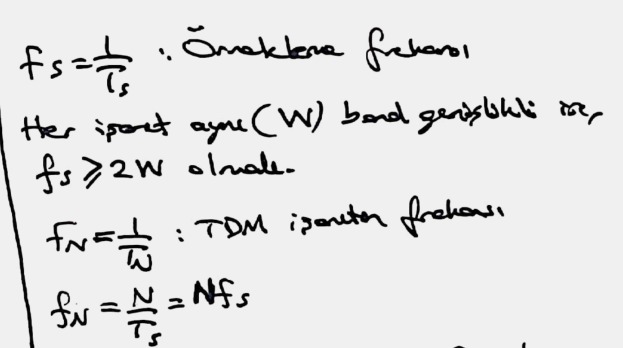 fs = 1/Ts : Örnekleme frekansı
Her işaret aynı (W) band genişlikli ise,
fs ≥ 2W olmalı.
fN = 1/TN : TDM işaretin frekansı
fN = N/Ts = Nfs